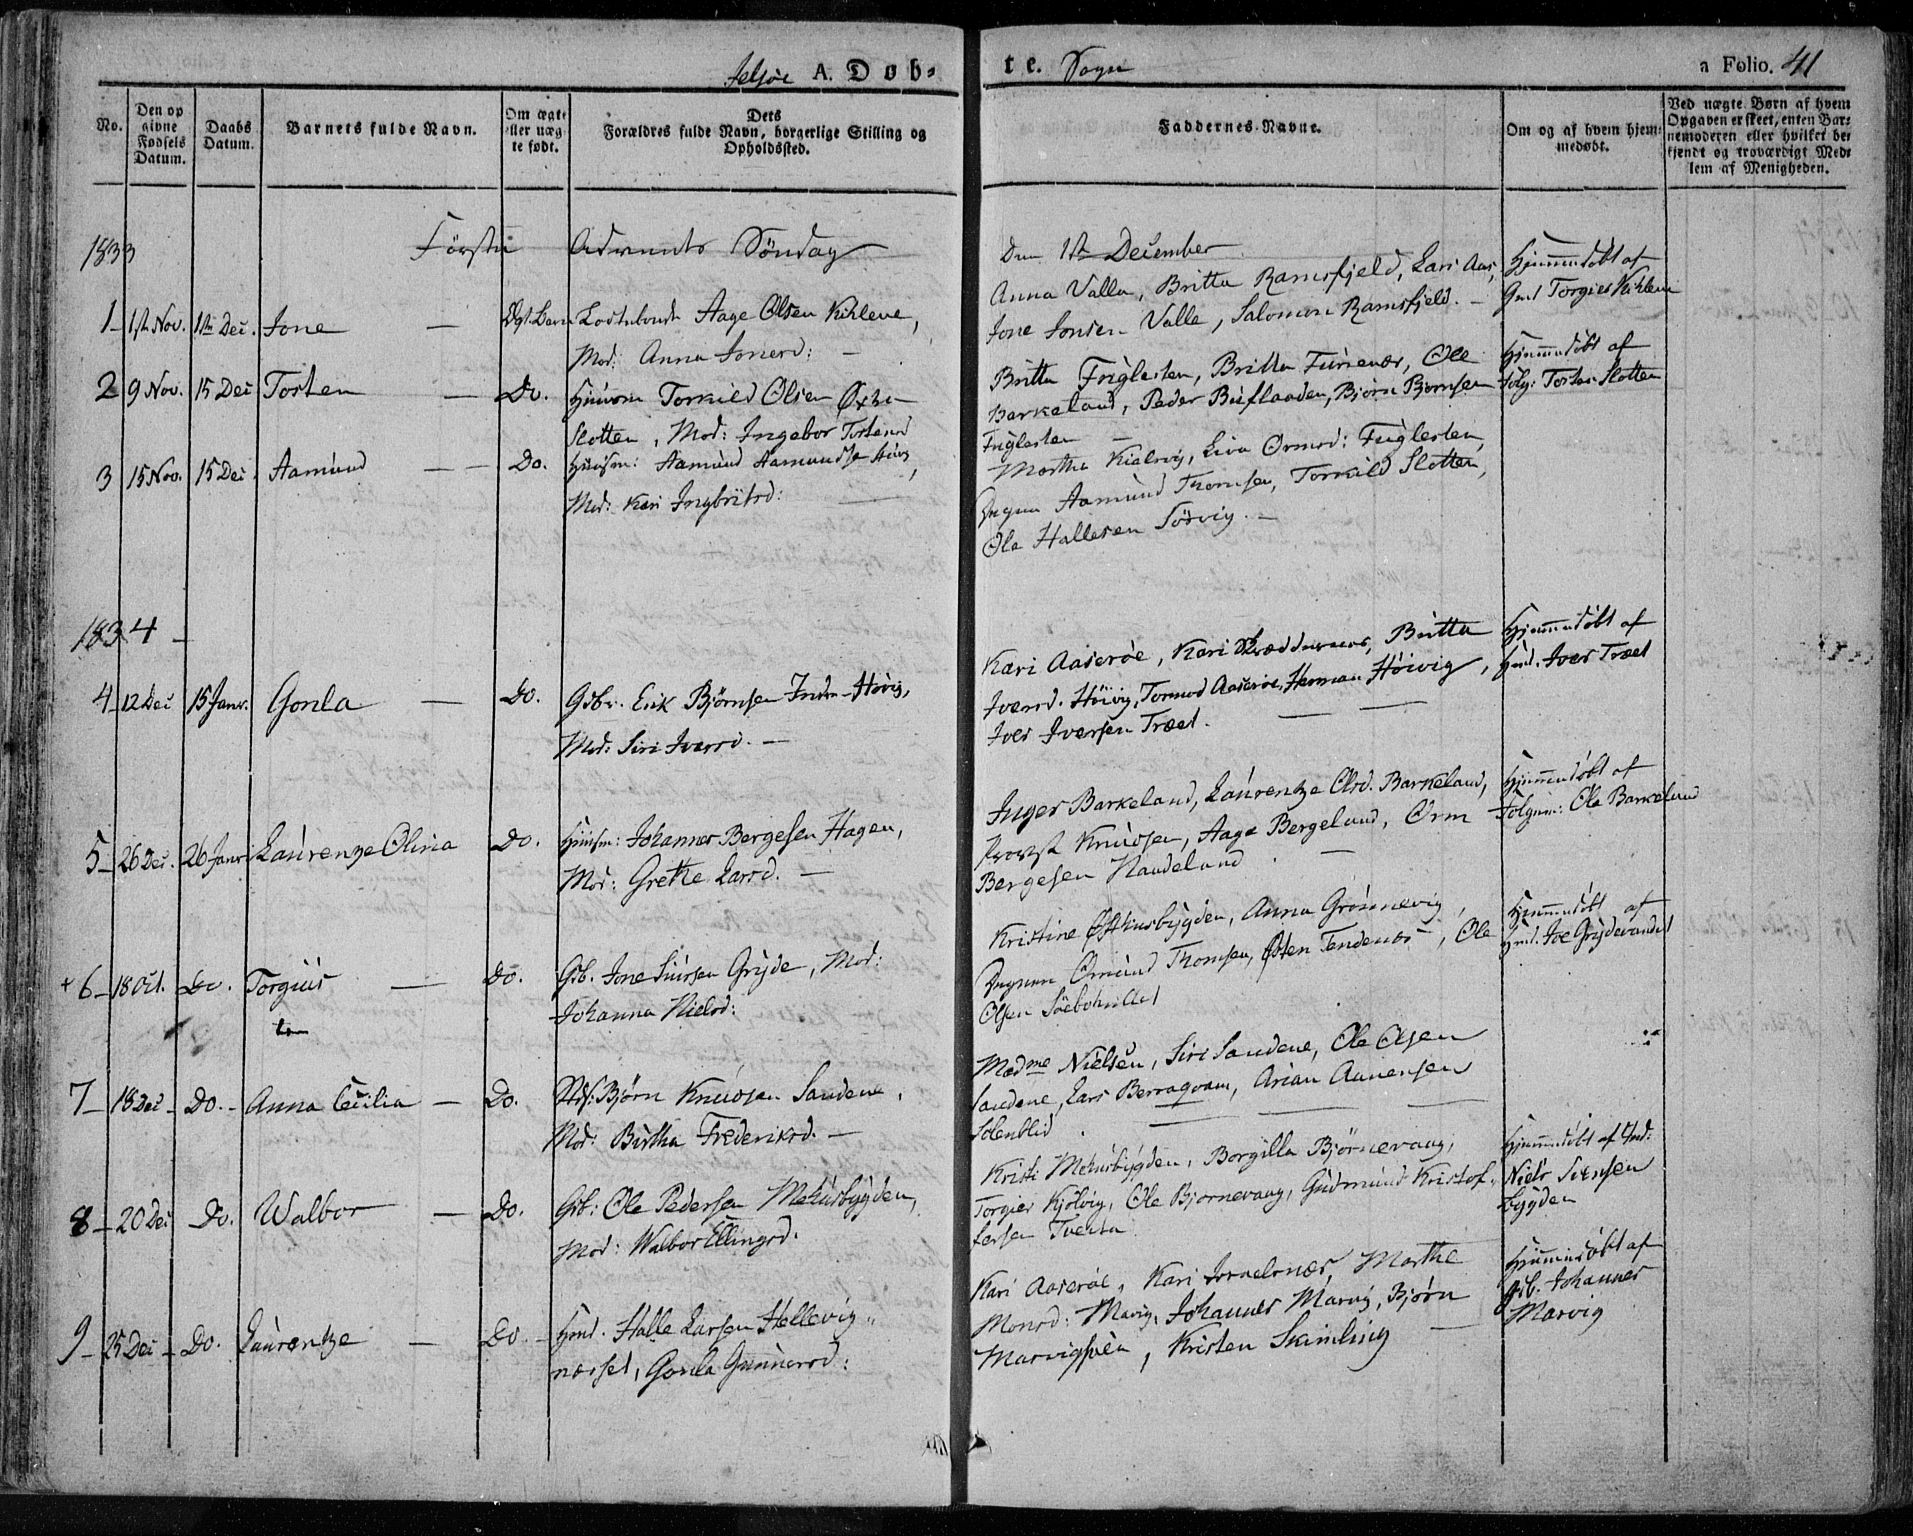 Jelsøe A. Døb-
te. Sogn
a Folio. 41
No.
Den op
givne
Fødsels
Datum.
Daabs
Datum.
Barnets fulde Navn.
Om ægte
eller uæg-
te født.
Dets
Forældres fulde Navn, borgerlige Stilling og
Opholdssted.
Faddernes Navne.
Om og af hvem hjem-
medøbt.
Ved uægte Børn af hvem
Opgaven er skeet, enten Bar-
nemoderen eller hvilket be-
kjendt og troværdigt Med-
lem af Menigheden.
1833 Første Advents Søndag
Den 1ste December
1 1ste Nov. 1ste Dec. Jone Ægt. Barn Aage Olsen Kihlene,
Mod: Anna Jonesd:
Anna Valla, Britta Ramsfjeld, Lars Aas,
Jone Jonsen Valle, Salomon Ramsfjeld.
Hjemmedøbt af
Gml Torgies Kihlene
2 9 Nov. 15 Dec Tosten Do. Huusm Torkild Olsen Østre
Slotten, Mod: Ingebor Tostensd
Britta Fuglesten, Britta Furenæs, Ole
Barkeland, Peder Buflaaden, Bjørn Bjørnsen
Fuglesten
Hjemmedøbt af
Følg: Tosten Slotten
3 15 Nov. 15 Dec. Aamund Do. Huusm: Aamund Aamundsen
Mod: Kari Ingbritsd:
Martha Kialvig, Liva Ormsd: Fuglesten,
Dugnm Aamund Thomsen, Torkild Slotten,
Ole Hallesen Sørvig.
1834
4 12 Dec 15 Janr. Gonla Do. Gsbr. Erik Bjørnsen Indre-Høvig,
Mod: Siri Iversd.
Kari Aaserøe, Kari Skreddernæs, Britta
Iversd. Høivig, Tormod Aaserøe, Herman Høivig,
Iver Iversen Træet.
Hjemmedøbt af
Gml. Iver Træet
5 26 Dec. 26 Janr Laurentze Olina Do. Huusm: Johannes Bergesen Hagen,
Mod: Grethe Larsd.
Inger Barkeland, Laurentze Olsd. Barkeland,
Provst Knudsen, Aage Bergeland, Orm
Bergesen Haudeland
Hjemmedøbt af
Følgnm: Ole Barkeland
+ 6 18 Oct. Do. Torgius Do. Gsb. Jone Siursen Gryde, Mod:
Johanna Nielsd:
Kristine Østhusbygden, Anna Grønnevig,
Dugnm Omund Thomsen, Østen Tendenæs, Ole
Olsen Søebohullet
Hjemmedøbt af
Gml. Joe Grydevandet
7 18 Dec Do. Anna Cecilia Do. Std: Bjørn Knudsen Sandene,
Mod: Birtha Frederiksd.
Madme Nielsen, Siri Sandene, Ole Olsen
Sandene, Lars Berraqvam, Arian Aanensen
Solenblid
8 20 Dec Do. Walbor Do. Gsb: Ole Pedersen Mehusbygden,
Mod: Walbor Ellingsd.
Kristi Mehusbygden, Borgilla Bjørnevaag,
Torgier Kjølvig, Ole Bjørnevaag, Gudmund Kristof-
fersen Tveita
Hjemmedøbt af
Niels Svensen
bygden
9 25 Dec Do. Laurentze Do. Huusm. Halle Larsen Hellevig-
næsset, Gonla Gunnarsd:
Kari Aaserøe, Kari Israelsnæs, Marthe
Monsd: Marvig, Johannes Marvig, Bjørn
Marvigsvên, Kristen Skimling
Hjemmedøbt af
Gsb. Johannes
Marvig